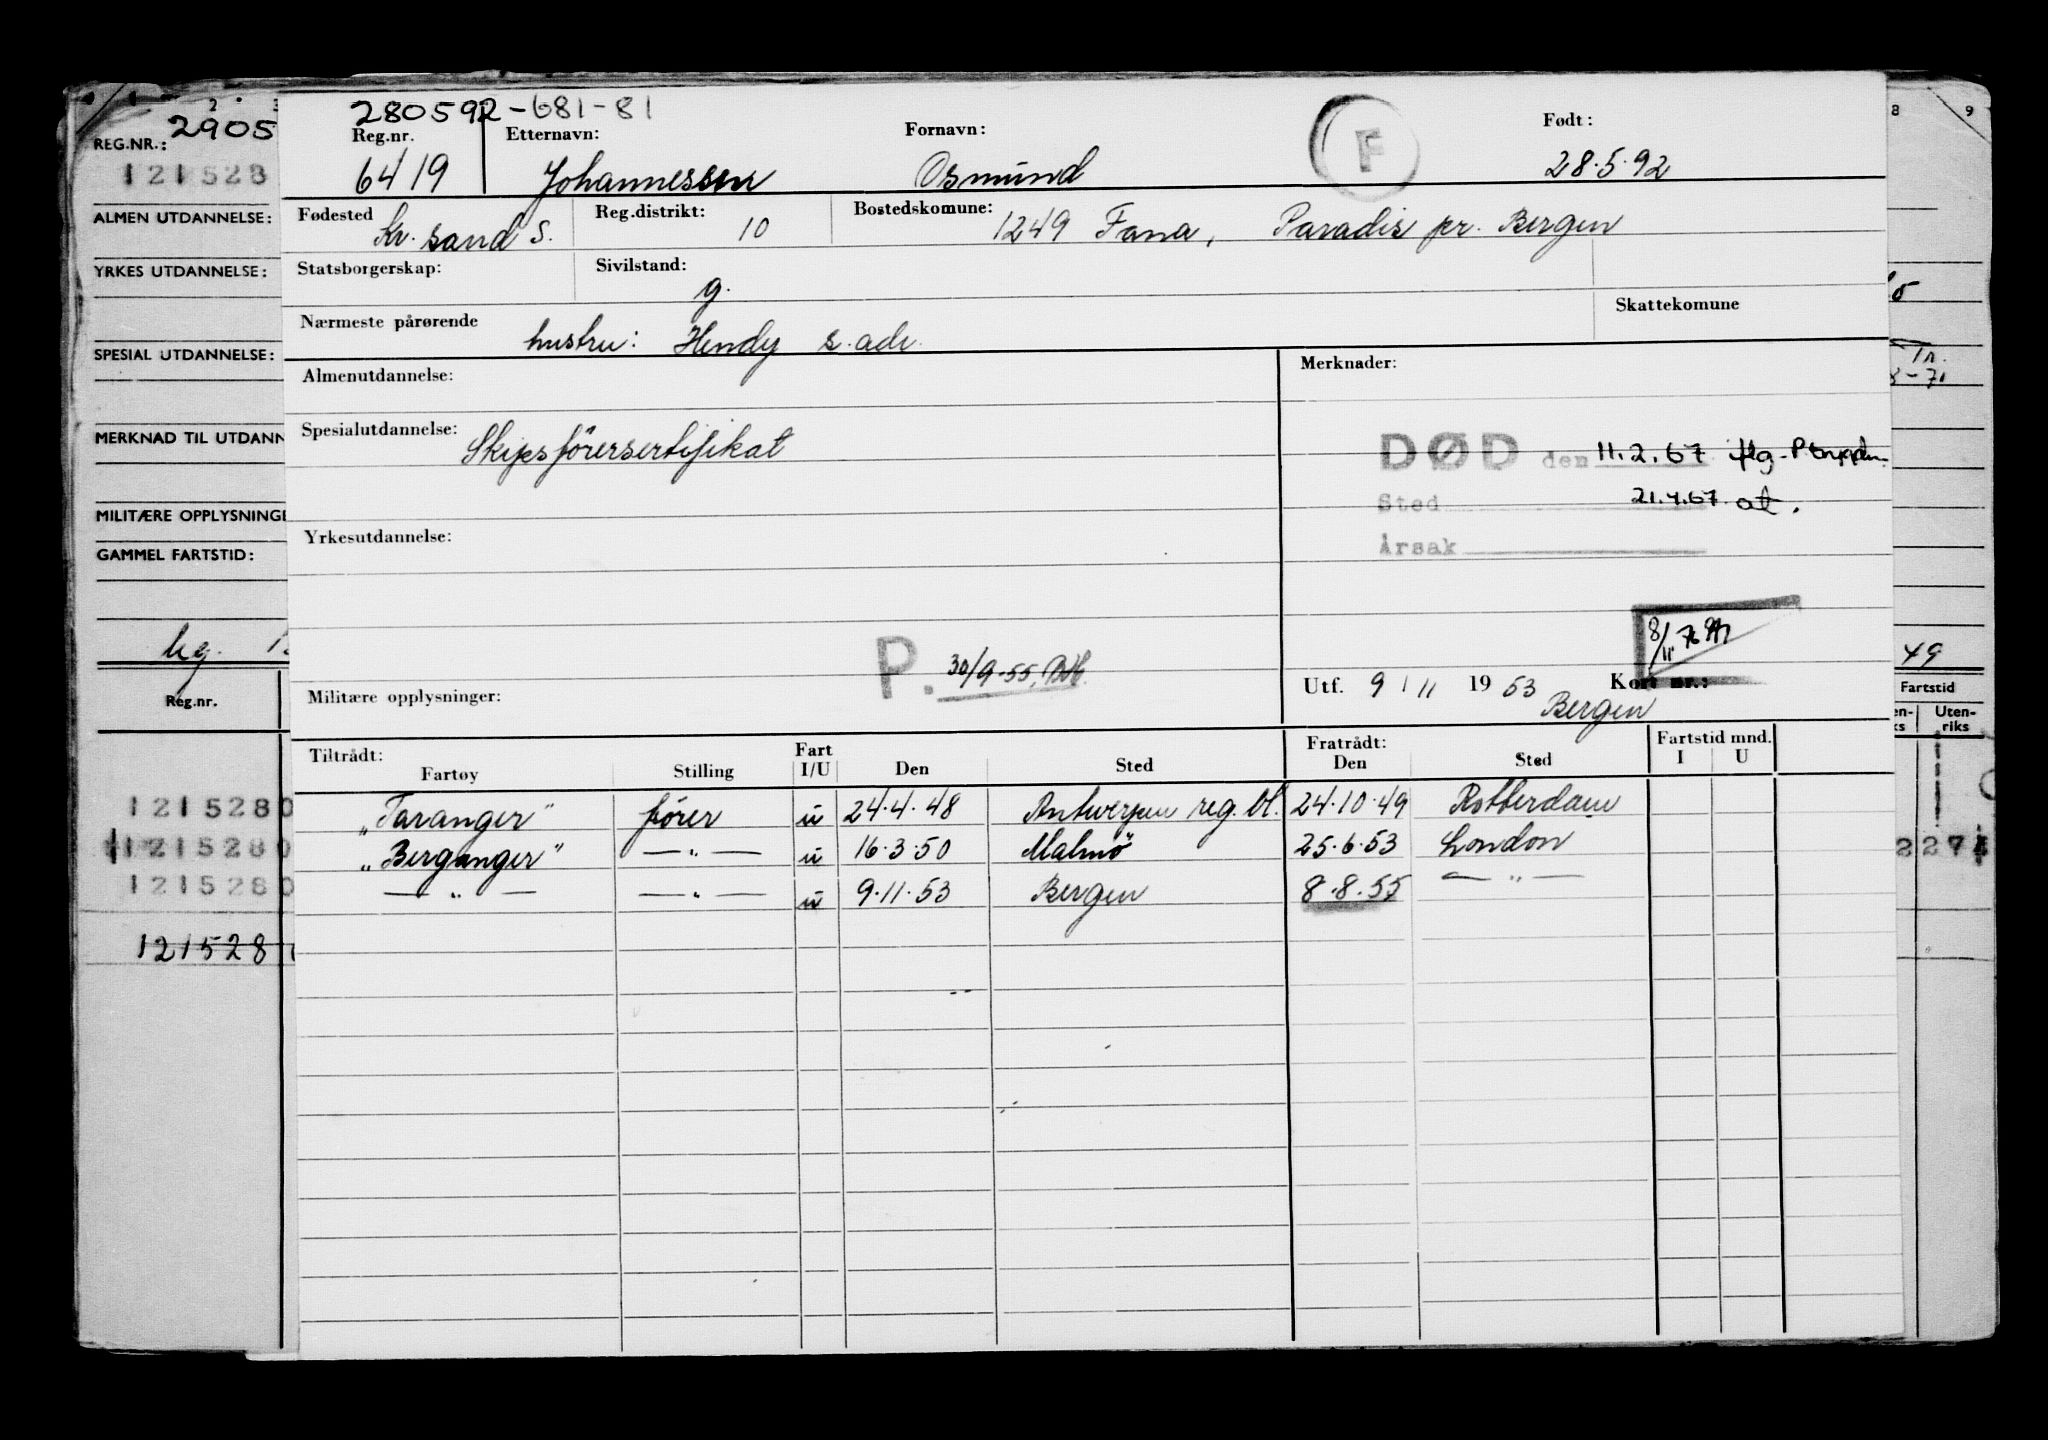 280592-681-81
Reg.nr. Etternavn: Fornavn: F Født:
6419 Johannessen Osmund 28.5.92
Fødested Kr.sand S. Reg.distrikt: 10 Bostedskomune: 1249 Fana, Paradis pr. Bergen
Statsborgerskap: Sivilstand: g.
Nærmeste pårørende hustru: Hendy s. adr. Skattekomune
Almenutdannelse: Merknader:
Spesialutdannelse: Skipsförersertifikat
DØD den 11.2.67 iflg.
Sted 21.4.67 at.
Årsak
Yrkesutdannelse:
P. 30/9-55.
8/11 76
Militære opplysninger: Utf. 9/11 1953 Kort nr.:
Bergen
Tiltrådt: Fart Fratrådt: Fartstid mnd.
Fartøy Stilling I/U Den Sted Den Sted I U
"Taranger" förer u 24.4.48 Antwerpen reg. bl. 24.10.49 Rotterdam
"Berganger" — " — u 16.3.50 Malmö 25.6.53 London
— " — — " — u 9.11.53 Bergen 8.8.55 — " —
2 3
2905
REG.NR.:
121528
ALMEN UTDANNELSE:
YRKES UTDANNELSE:
SPESIAL UTDANNELSE:
MERKNAD TIL UTDANN
MILITÆRE OPPLYSNINGE
GAMMEL FARTSTID:
Reg.nr.
1215280
1215280
1215280
121528
8 9
49
Fartstid
en-ks Uten-riks
227